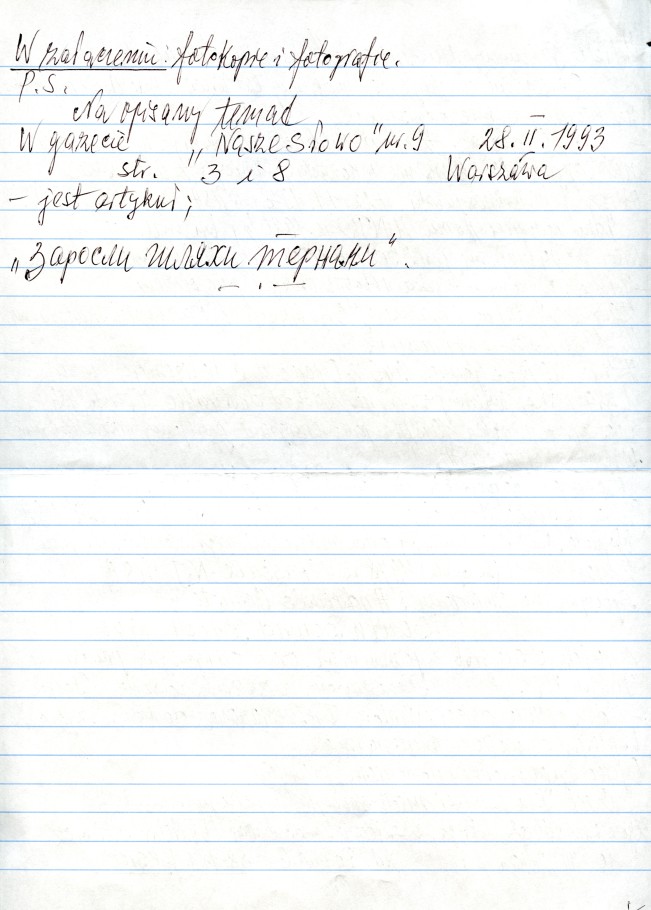 W załączeniu: fotokopie i fotografie.
P.S.
Na opisany temat
W gazecie „Nasze Słowo" nr. 9 28.II.1993
str. 3 i 8 Warszawa
– jest artykuł;
„Заросли шляхи тернами".